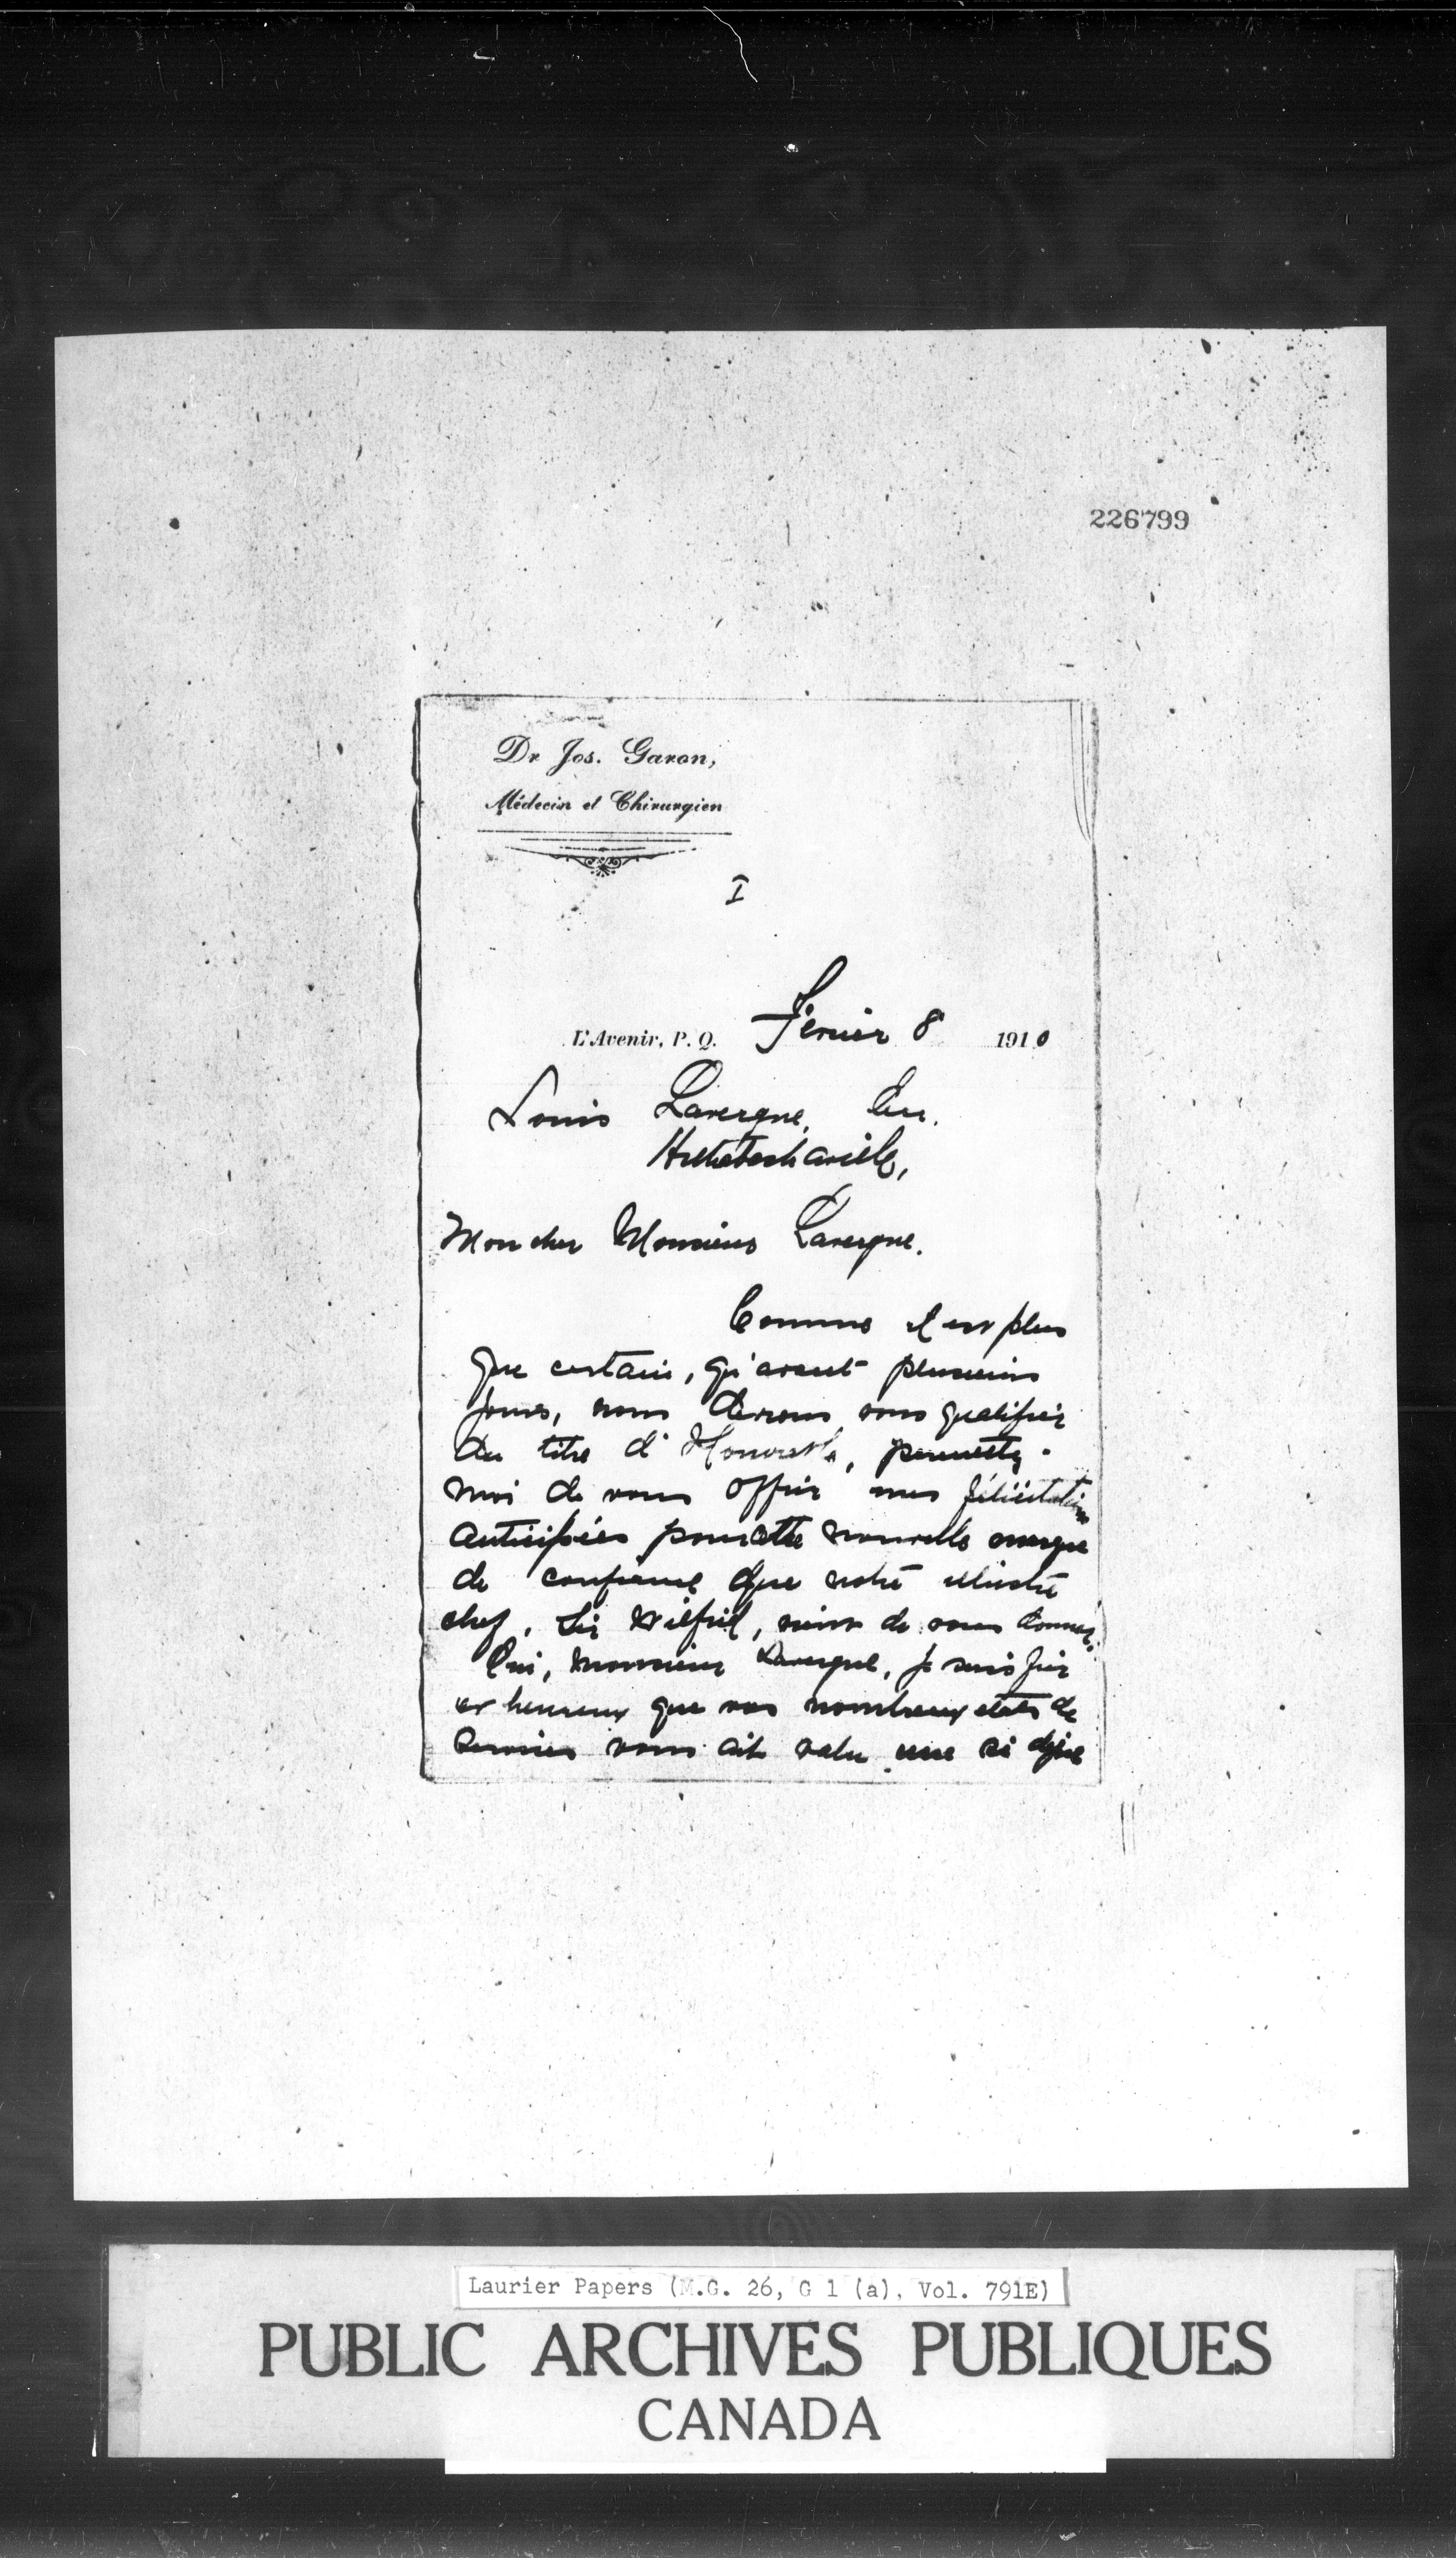 226799
Dr Jos. Garon,
Médecin et Chirurgien
I
L'Avenir, P. Q. Février 8 1910
Louis Lavergne, Ecr.
Arthabaskaville,
Mon cher Monsieur Lavergne.
Comme il est plus
que certain, qu'avant plusieurs
jours, nous devrons vous qualifier
du titre d'Honorable, permettez-
moi de vous offrir mes félicitations
anticipées pour cette nouvelle marque
de confiance que notre illustre
chef, Sir Wilfrid, vient de vous donner.
Oui, Monsieur Lavergne, je suis fier
et heureux que vos nombreux états de
services vous ait valu une si
Laurier Papers (M.G. 26, G 1 (a), Vol. 791E)
PUBLIC ARCHIVES PUBLIQUES
CANADA